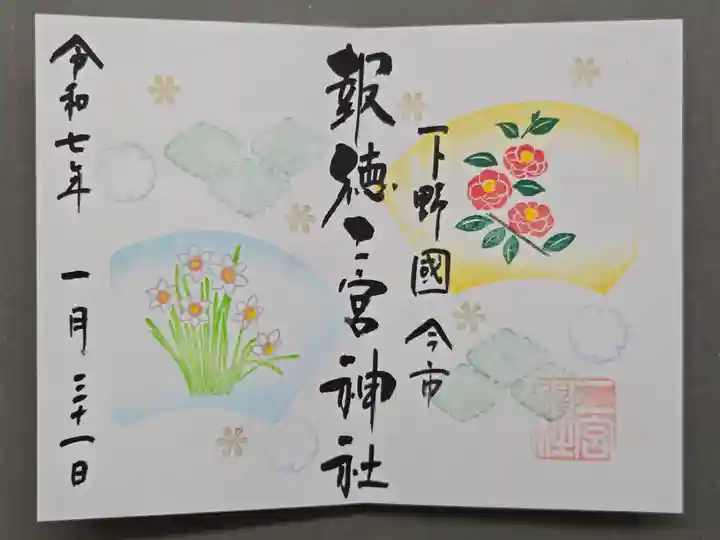 下野國 今市
報徳二宮神社
令和七年 一月 三十一日